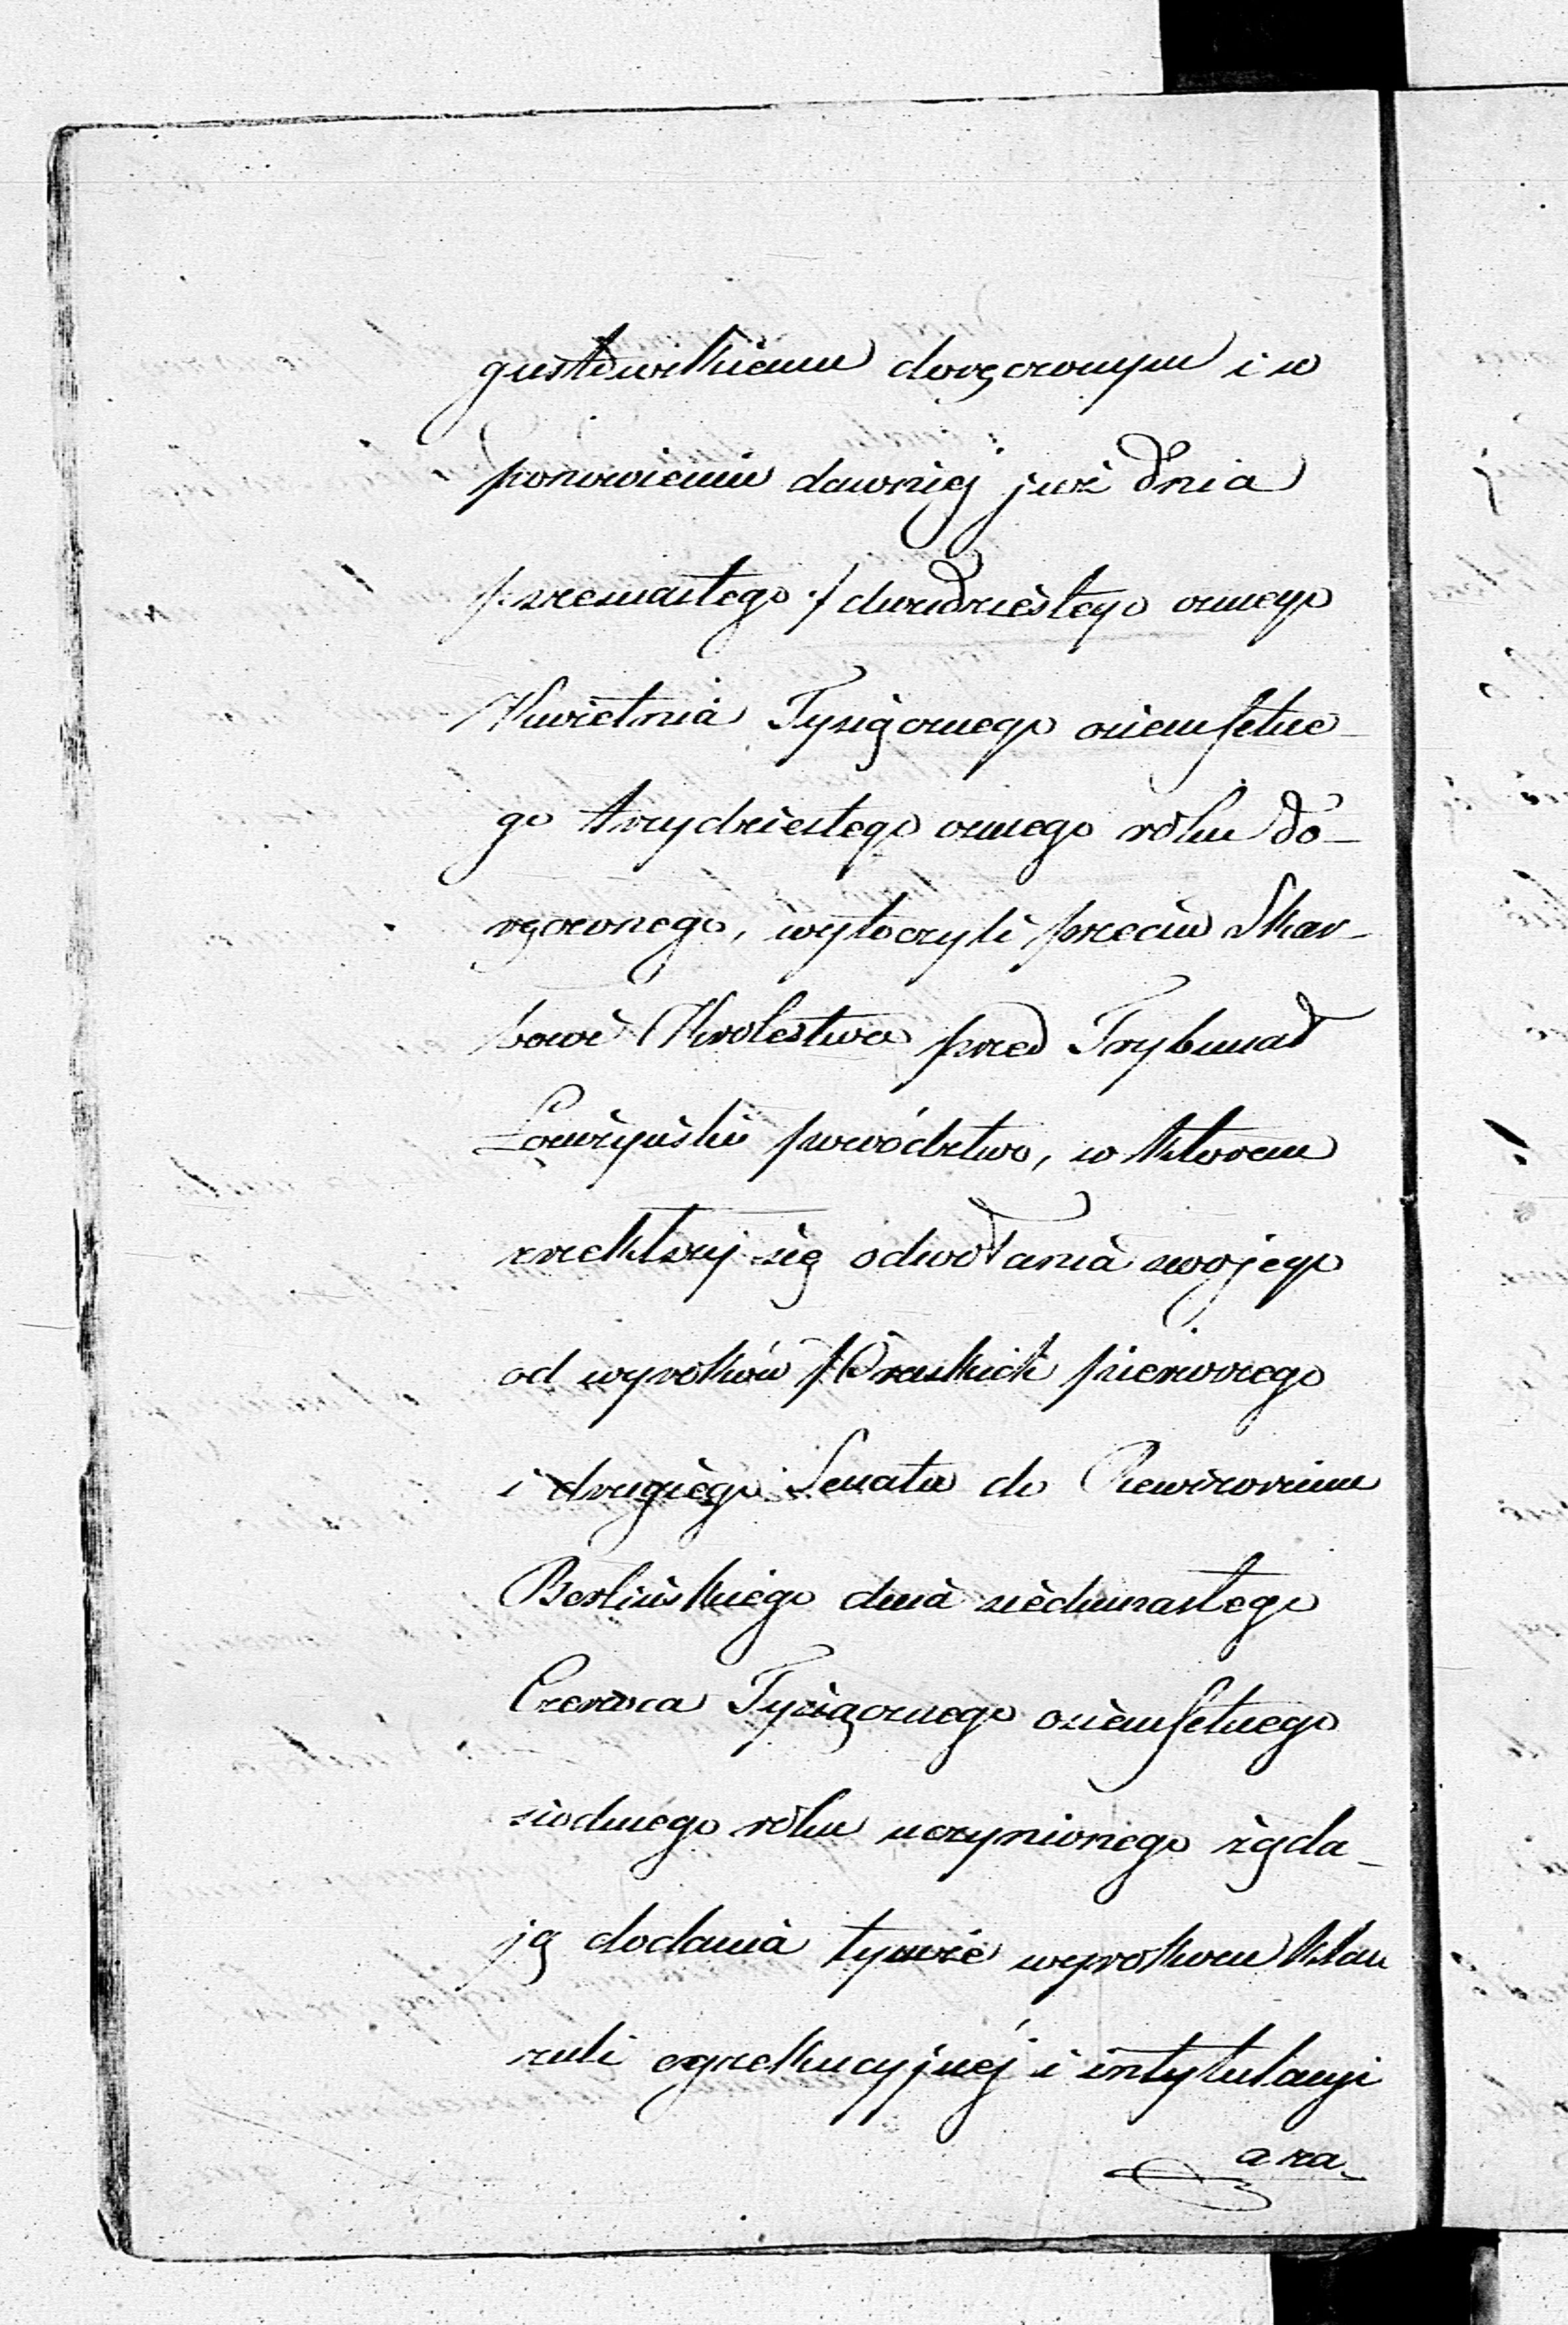 gustowskiemu doręczonym i w
ponowieniu dawniej już dnia
szesnastego / dwudziestego osmego
Kwietnia Tysiącznego ośiemsetne-
go trzydziestego osmego roku do-
ręczonego, wytoczyli przeciw Skar-
bowi Krolestwa przed Trybunał
Łomżyński powództwo, w ktorem
zrzekłszy się odwołania swojego
od wyroków Pruskich pierwszego
i drugiego Senatu do Rewizorium
Berlińskiego dnia siedmnastego
Czerwca Tysiącznego ośiemsetnego
siodmego roku uczynionego żąda-
ją dodania tymże wyrokom klau
zuli egzekucyjnej i intytulacyi
a za-